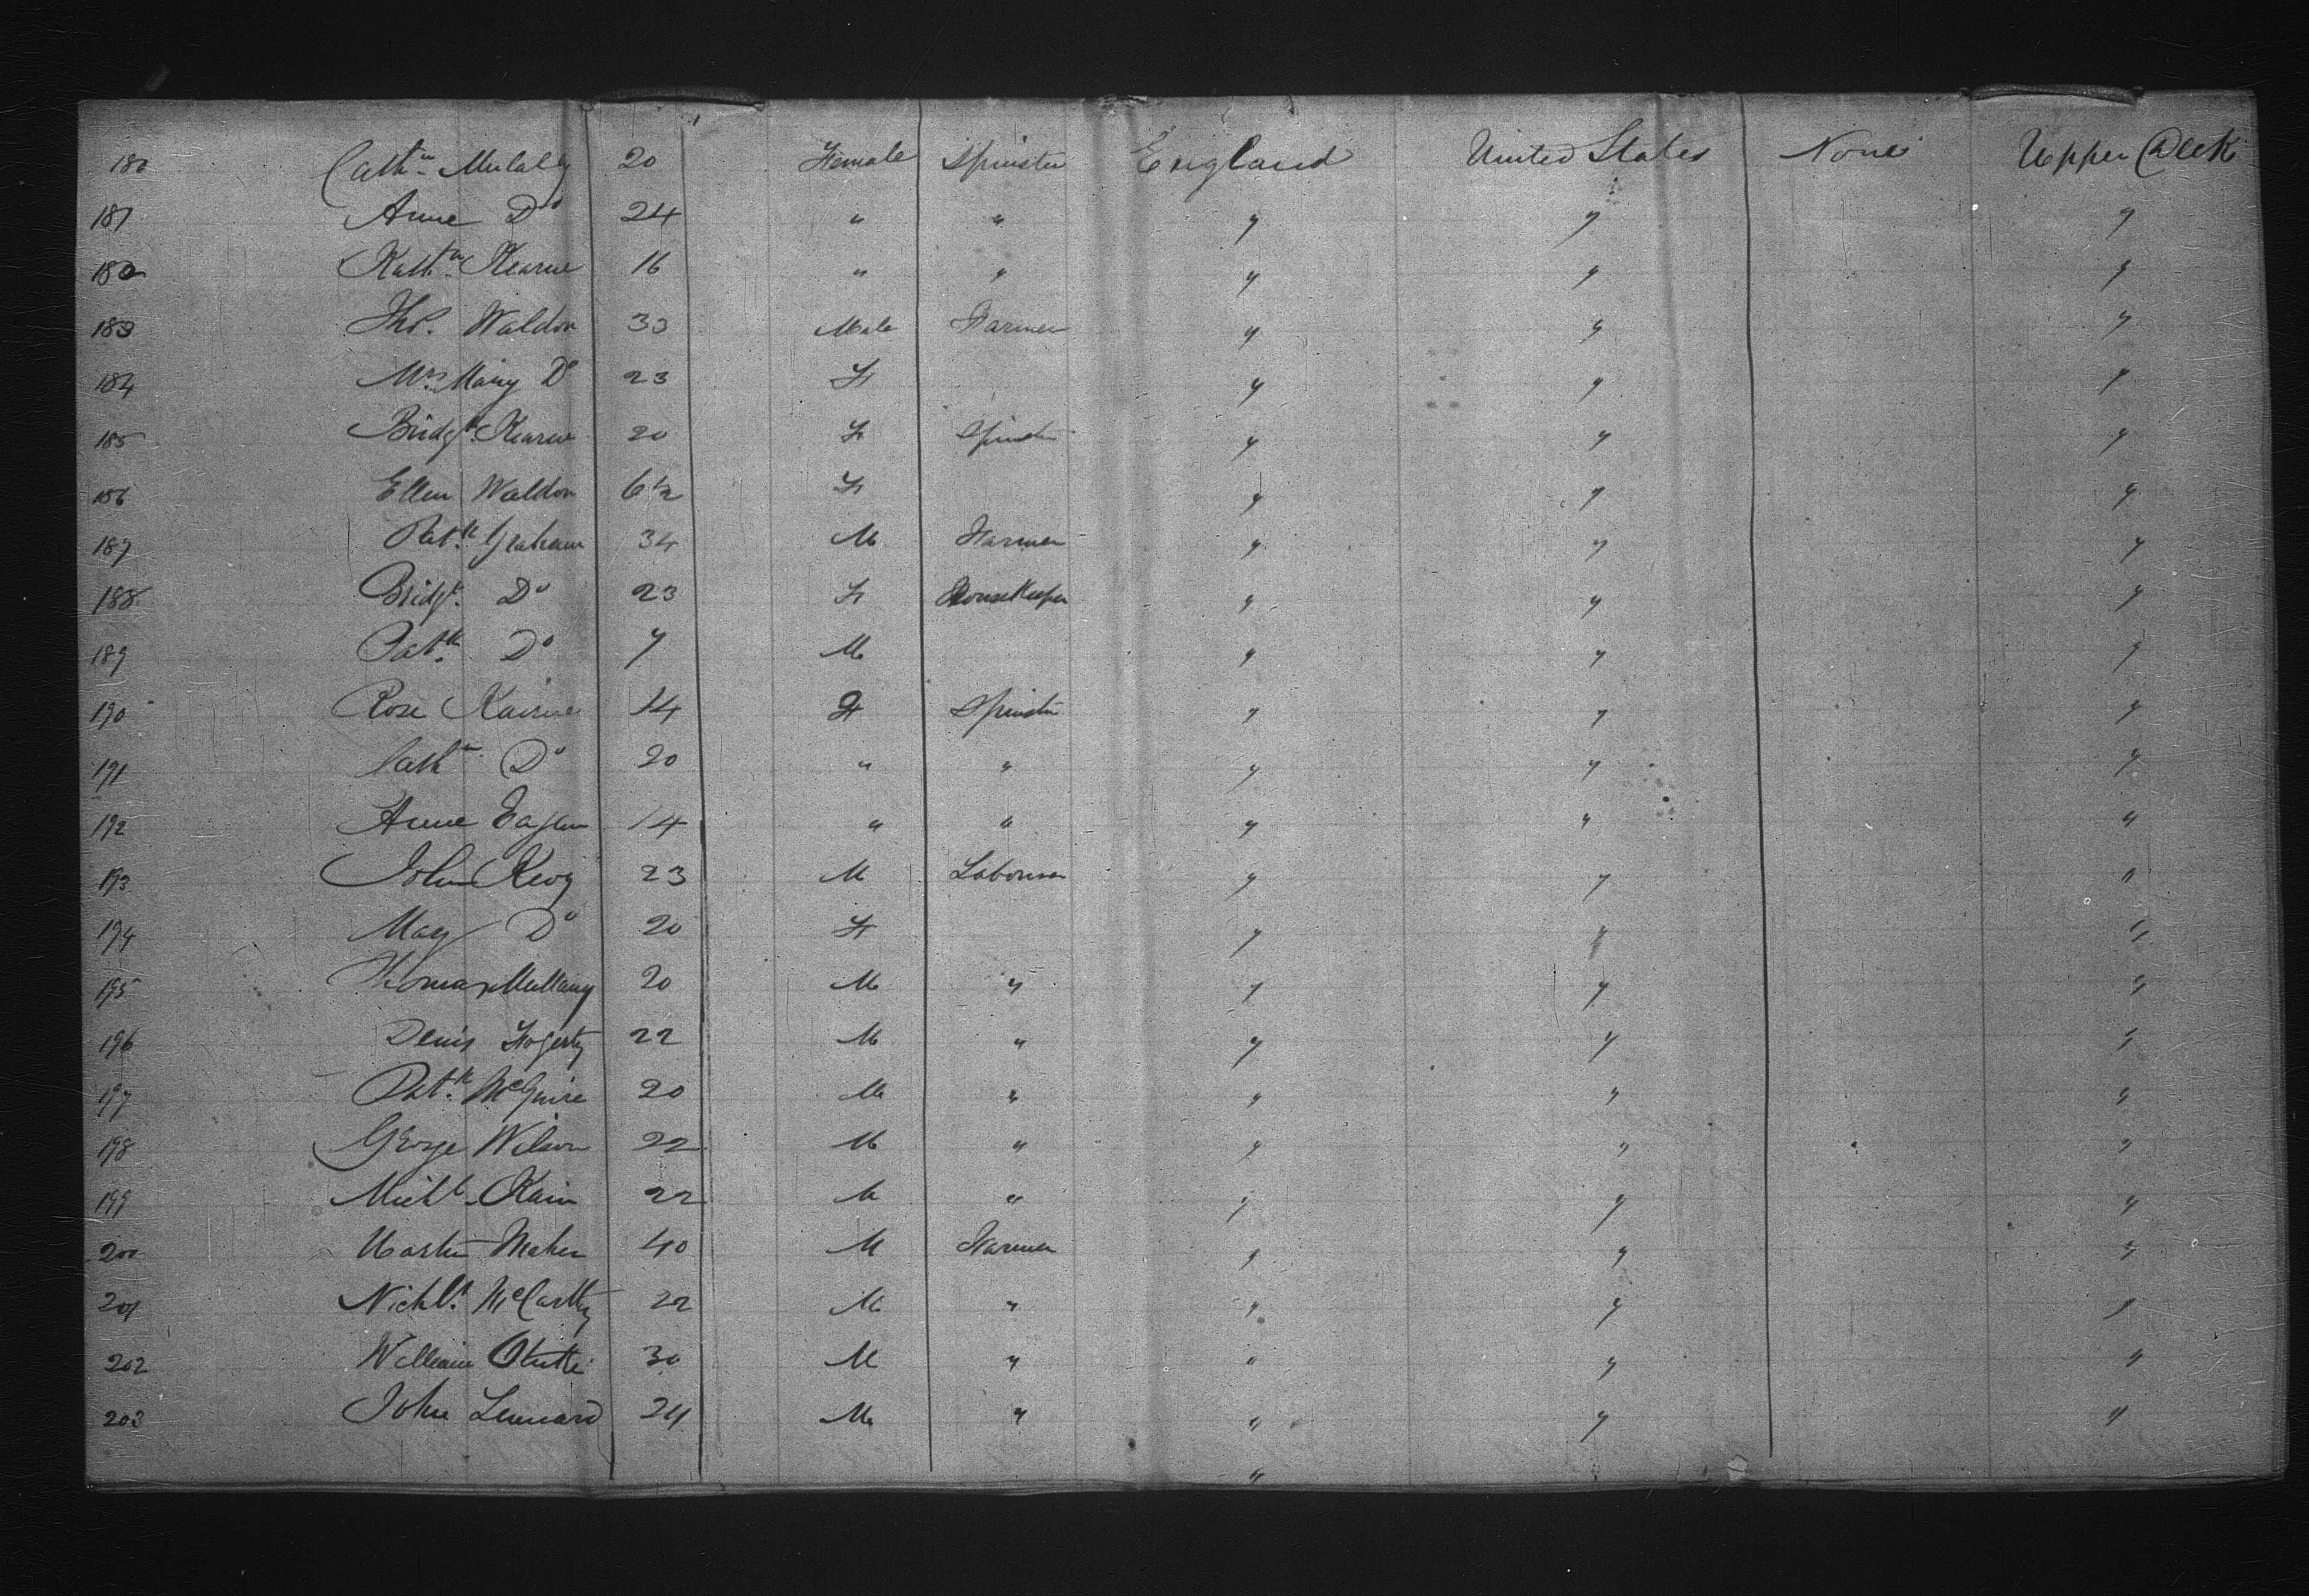 180 Cathn Mulally 20 Female Spinster England United States None Upper Deck
181 Anne Do 24 " " " " "
182 Kathn Kearne 16 " " " " "
183 Thos. Waldon 33 Male Farmer " " "
184 Mrs Mary Do 23 F " " "
185 Bridgt Kearne 20 F Spinster " " "
186 Ellen Waldon 6½ F " " "
187 Patk Graham 34 M Farmer " " "
188 Bridgt. Do 23 F HouseKeeper " " "
189 Patk. Do 7 M " " "
190 Rose Kairne 14 F Spinster " " "
191 Cathn Do 20 " " " " "
192 Anne 14 " " " " "
193 John Kevy 23 M Labourer " " "
194 Mary Do 20 F " " "
195 Thomas Mullany 20 M " " " "
196 Denis Fogerty 22 M " " " "
197 Patk. McGuire 20 M " " " "
198 George Wilson 22 M " " " "
199 Michl Kain 22 M " " " "
200 Martin Meher 40 M Farmer " " "
201 Nichls. McCarthy 22 M " " " "
202 William 30 M " " " "
203 John Lennard 24 M " " " "
"